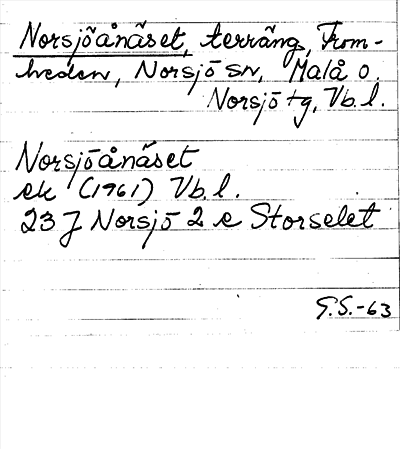 Norsjöånäset, terräng, From-
heden, Norsjö sn, Malå o.
Norsjö tg, Vb. l.
Norsjöånäset
ek (1961) Vb. l.
23 J Norsjö 2 e Storselet
G.S.-63